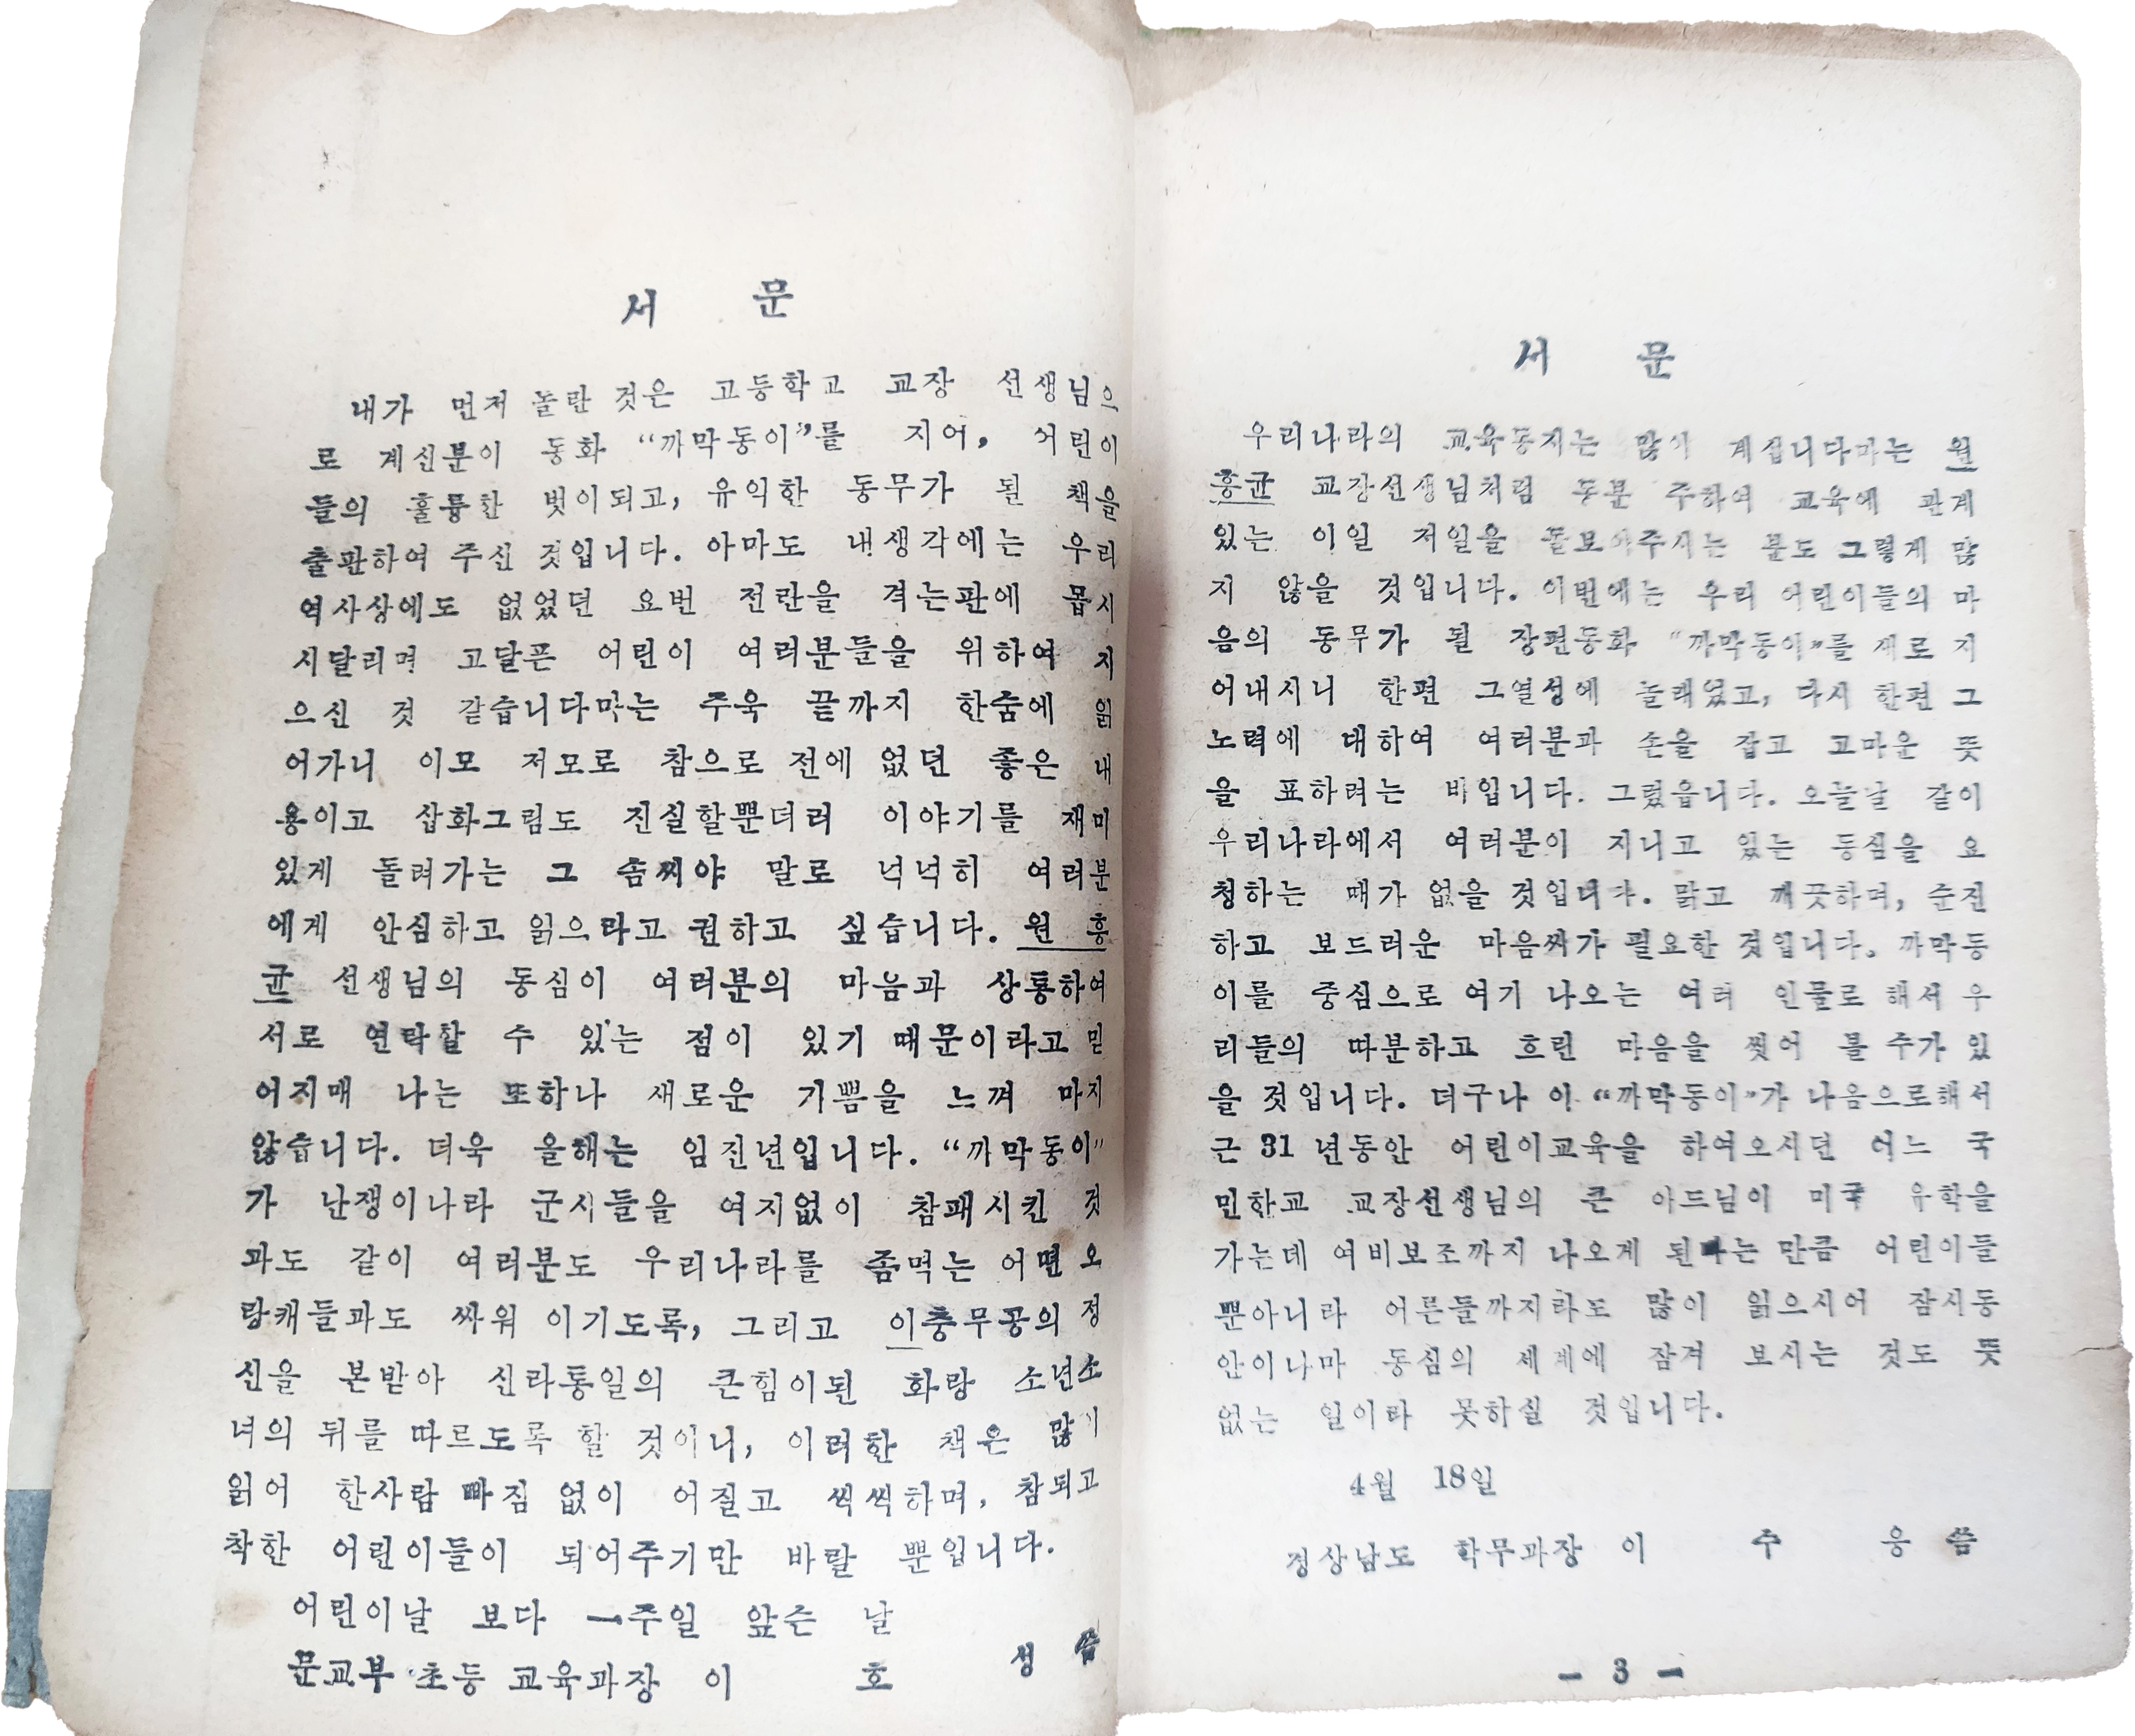 서 문
내가 먼저 놀란 것은 고등학교 교장 선생님으
로 계신분이 동화 “까막동이”를 지어, 어린이
들의 훌륭한 벗이되고, 유익한 동무가 될 책을
출판하여 주신 것입니다. 아마도 내생각에는 우리
역사상에도 없었던 요번 전란을 격는판에 몹시
시달리며 고달픈 어린이 여러분들을 위하여 지
으신 것 같습니다마는 주욱 끝까지 한숨에 읽
어가니 이모 저모로 참으로 전에 없던 좋은 내
용이고 삽화그림도 진실할뿐더러 이야기를 재미
있게 돌려가는 그 솜씨야 말로 넉넉히 여러분
에게 안심하고 읽으라고 권하고 싶습니다. 원 흥
균 선생님의 동심이 여러분의 마음과 상통하여
서로 연락할 수 있는 점이 있기 때문이라고 믿
어지매 나는 또하나 새로운 기쁨을 느껴 마지
않습니다. 더욱 올해는 임진년입니다. “까막동이”
가 난쟁이나라 군사들을 여지없이 참패시킨 것
과도 같이 여러분도 우리나라를 좀먹는 어떤 오
랑캐들과도 싸워 이기도록, 그리고 이충무공의 정
신을 본받아 신라통일의 큰힘이된 화랑 소년소
녀의 뒤를 따르도록 할 것이니, 이러한 책은 많이
읽어 한사람 빠짐 없이 어질고 씩씩하며, 참되고
착한 어린이들이 되어주기만 바랄 뿐입니다.
어린이날 보다 一주일 앞슨 날
문교부 초등 교육과장 이 호 성 씀
서 문
우리나라의 교육동지는 많이 계십니다마는 원
흥균 교장선생님처럼 동분 주하여 교육에 관계
있는 이일 저일을 돌보아주시는 분도 그렇게 많
지 않을 것입니다. 이번에는 우리 어린이들의 마
음의 동무가 될 장편동화 “까막동이”를 새로 지
어내시니 한편 그열성에 놀래었고, 다시 한편 그
노력에 대하여 여러분과 손을 잡고 고마운 뜻
을 표하려는 바입니다. 그렀읍니다. 오늘날 같이
우리나라에서 여러분이 지니고 있는 동심을 요
청하는 때가 없을 것입니다. 맑고 깨끗하며, 순진
하고 보드러운 마음싸가 필요한 것입니다. 까막동
이를 중심으로 여기 나오는 여러 인물로 해서 우
리들의 따분하고 흐린 마음을 씻어 볼 수가 있
을 것입니다. 더구나 이 “까막동이”가 나옴으로해서
근 31 년동안 어린이교육을 하여오시던 어느 국
민학교 교장선생님의 큰 아드님이 미국 유학을
가는데 여비보조까지 나오게 된다는 만큼 어린이들
뿐아니라 어른들까지라도 많이 읽으시어 잠시동
안이나마 동심의 세계에 잠겨 보시는 것도 뜻
없는 일이라 못하실 것입니다.
4월 18일
경상남도 학무과장 이 주 웅 씀
— 3 —